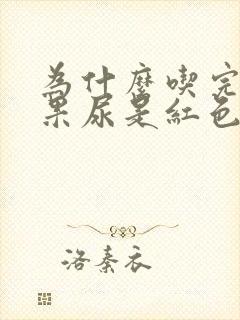 為什麼喫完
果尿是紅色
洛秦衣